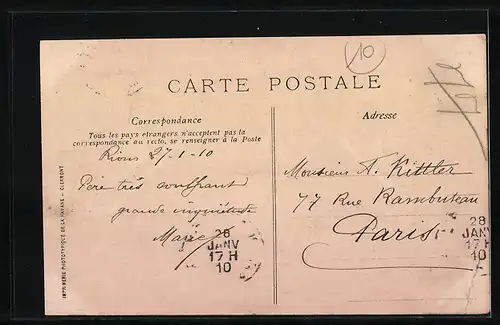 10
CARTE POSTALE
Correspondance
Tous les pays étrangers n'acceptent pas la
correspondance au recto, se renseigner à la Poste
Adresse
Riom 27-1-10
Père très souffrant
grande inquiétude
Marie
28
JANV
17 H
10
Monsieur A. Kittler
77 Rue Rambuteau
Paris
28
JANV
17 H
10
IMPRIMERIE PHOTOTYPIQUE DE LA - CLERMONT